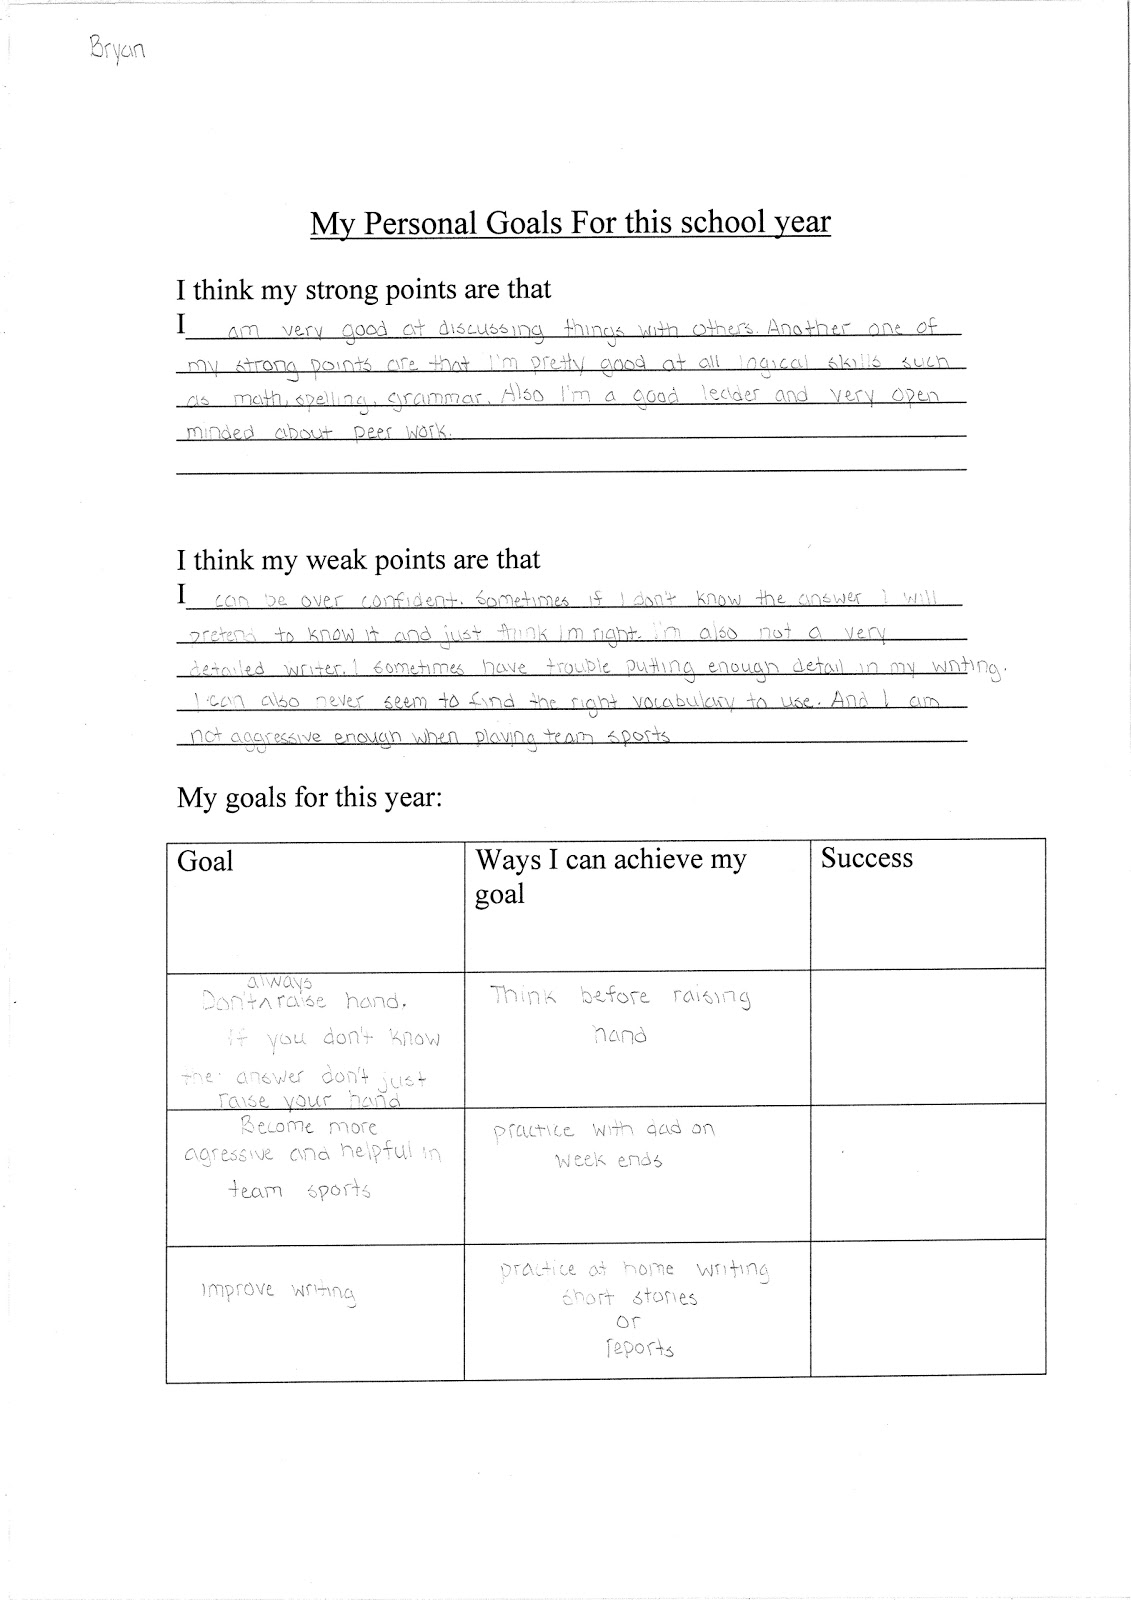 Bryan
My Personal Goals For this school year
I think my strong points are that
I am very good at discussing things with others. Another one of
my strong points are that I'm pretty good at all logical skills such
as math, spelling, grammar. Also I'm a good leader and very open
minded about peer work.
I think my weak points are that
I can be over confident. Sometimes if I don't know the answer I will
pretend to know it and just think I'm right. I'm also not a very
detailed writer. I sometimes have trouble putting enough detail in my writing.
I can also never seem to find the right vocabulary to use. And I am
not aggressive enough when playing team sports
My goals for this year:
Goal
Ways I can achieve my
goal
Success
always
Don't ^ raise hand.
If you don't know
the answer don't just
raise your hand
Think before raising
hand
Become more
agressive and helpful in
team sports
practice with dad on
week ends
improve writing
practice at home writing
short stories
or
reports